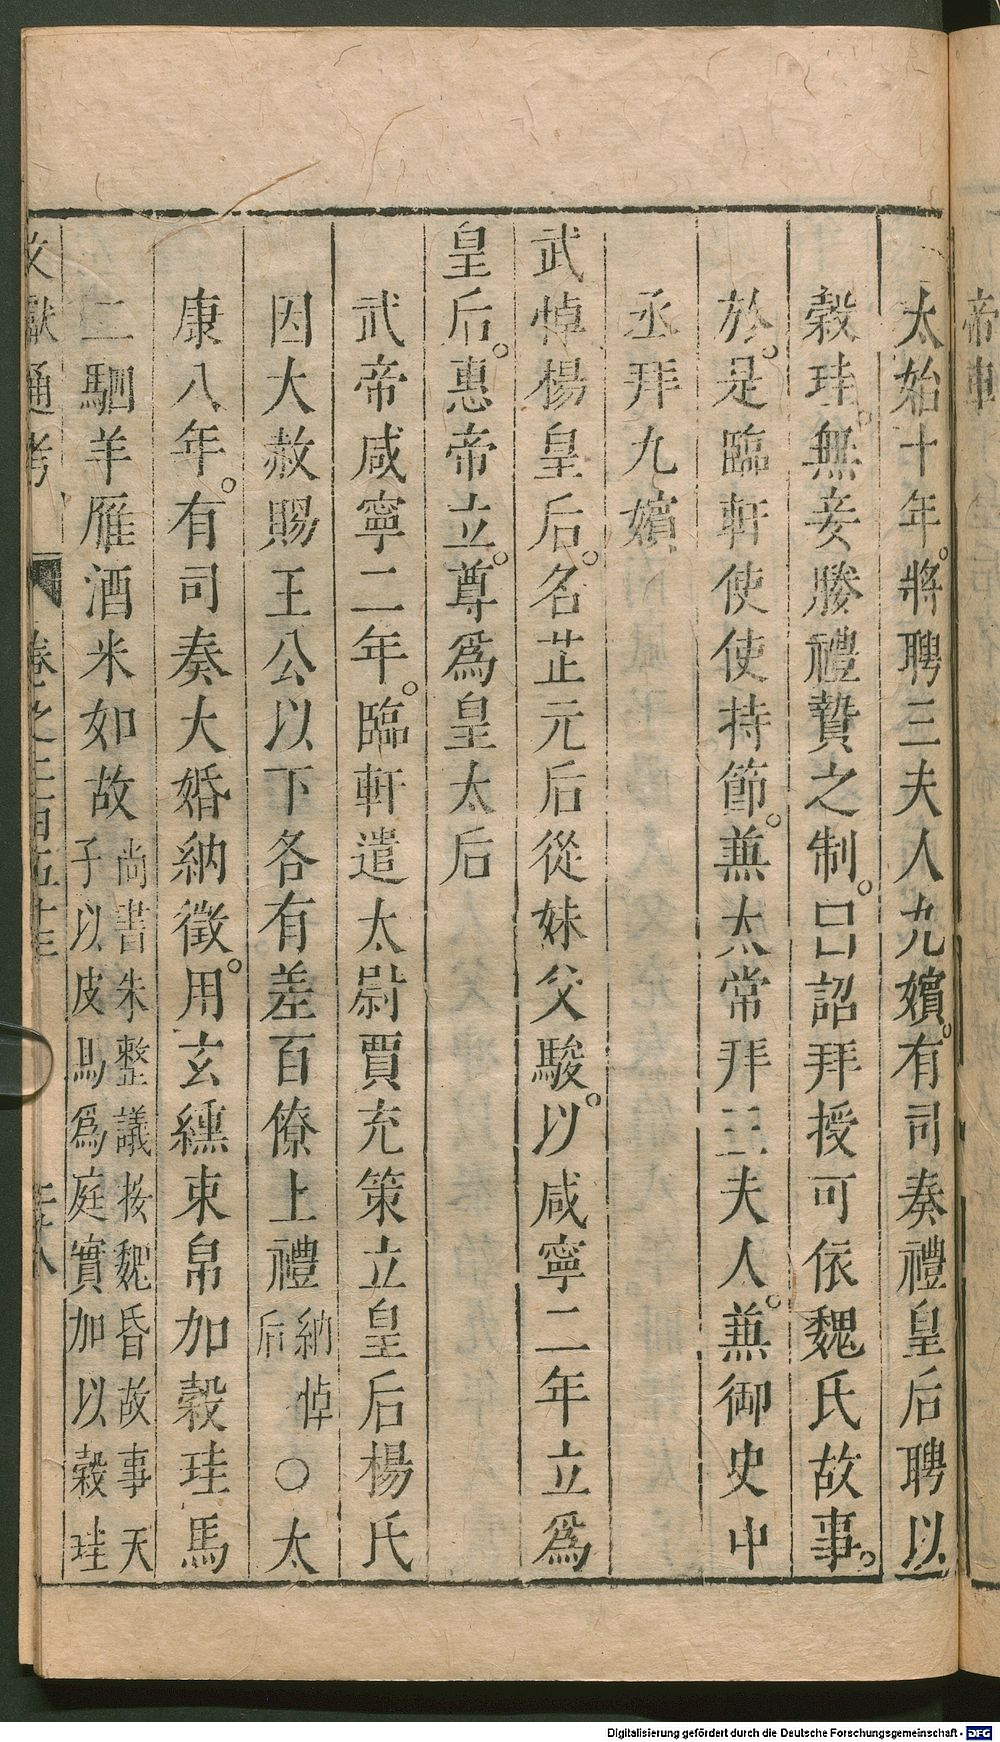 太始十年。將聘三夫人九嬪。有司奏禮皇后聘以
穀珪。無妾媵禮贄之制。詔拜授可依魏氏故事。
於。是臨軒使使持節。兼太常拜三夫人。兼御史中
丞拜九嬪
武悼楊皇后。名芷元后從妹父駿。以咸寧二年立爲
皇后。惠帝立。尊爲皇太后
武帝咸寧二年。臨軒遣太尉賈充策立皇后楊氏
因大赦賜王公以下各有差百僚上禮納悼后〇太
康八年。有司奏大婚納徵。用玄纁束帛加穀珪馬
二駟羊雁酒米如故尚書朱整議按魏昏故事天
子以皮馬爲庭實加以穀珪
文獻通考 卷之二百五十三
帝
Digitalisierung gefördert durch die Deutsche Forschungsgemeinschaft - DFG